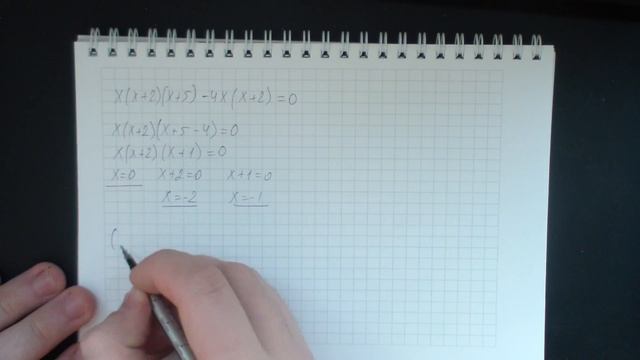 x(x+2)(x+5)-4x(x+2)=0
x(x+2)(x+5-4)=0
x(x+2)(x+1)=0
x=0 x+2=0 x+1=0
x=-2 x=-1
(